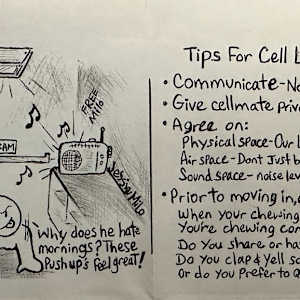 FREE
Milo
JessieMilo
Why does he hate
mornings? These
Pushup's Feel great!
Tips For Cell
• Communicate-
• Give cellmate
• Agree on:
Physical space-Our
Air space- Dont Just
Sound space- noise
• Prior to moving in,
When your chewing
You're chewing
Do You share or
Do You clap & Yell
Or do You Prefer to